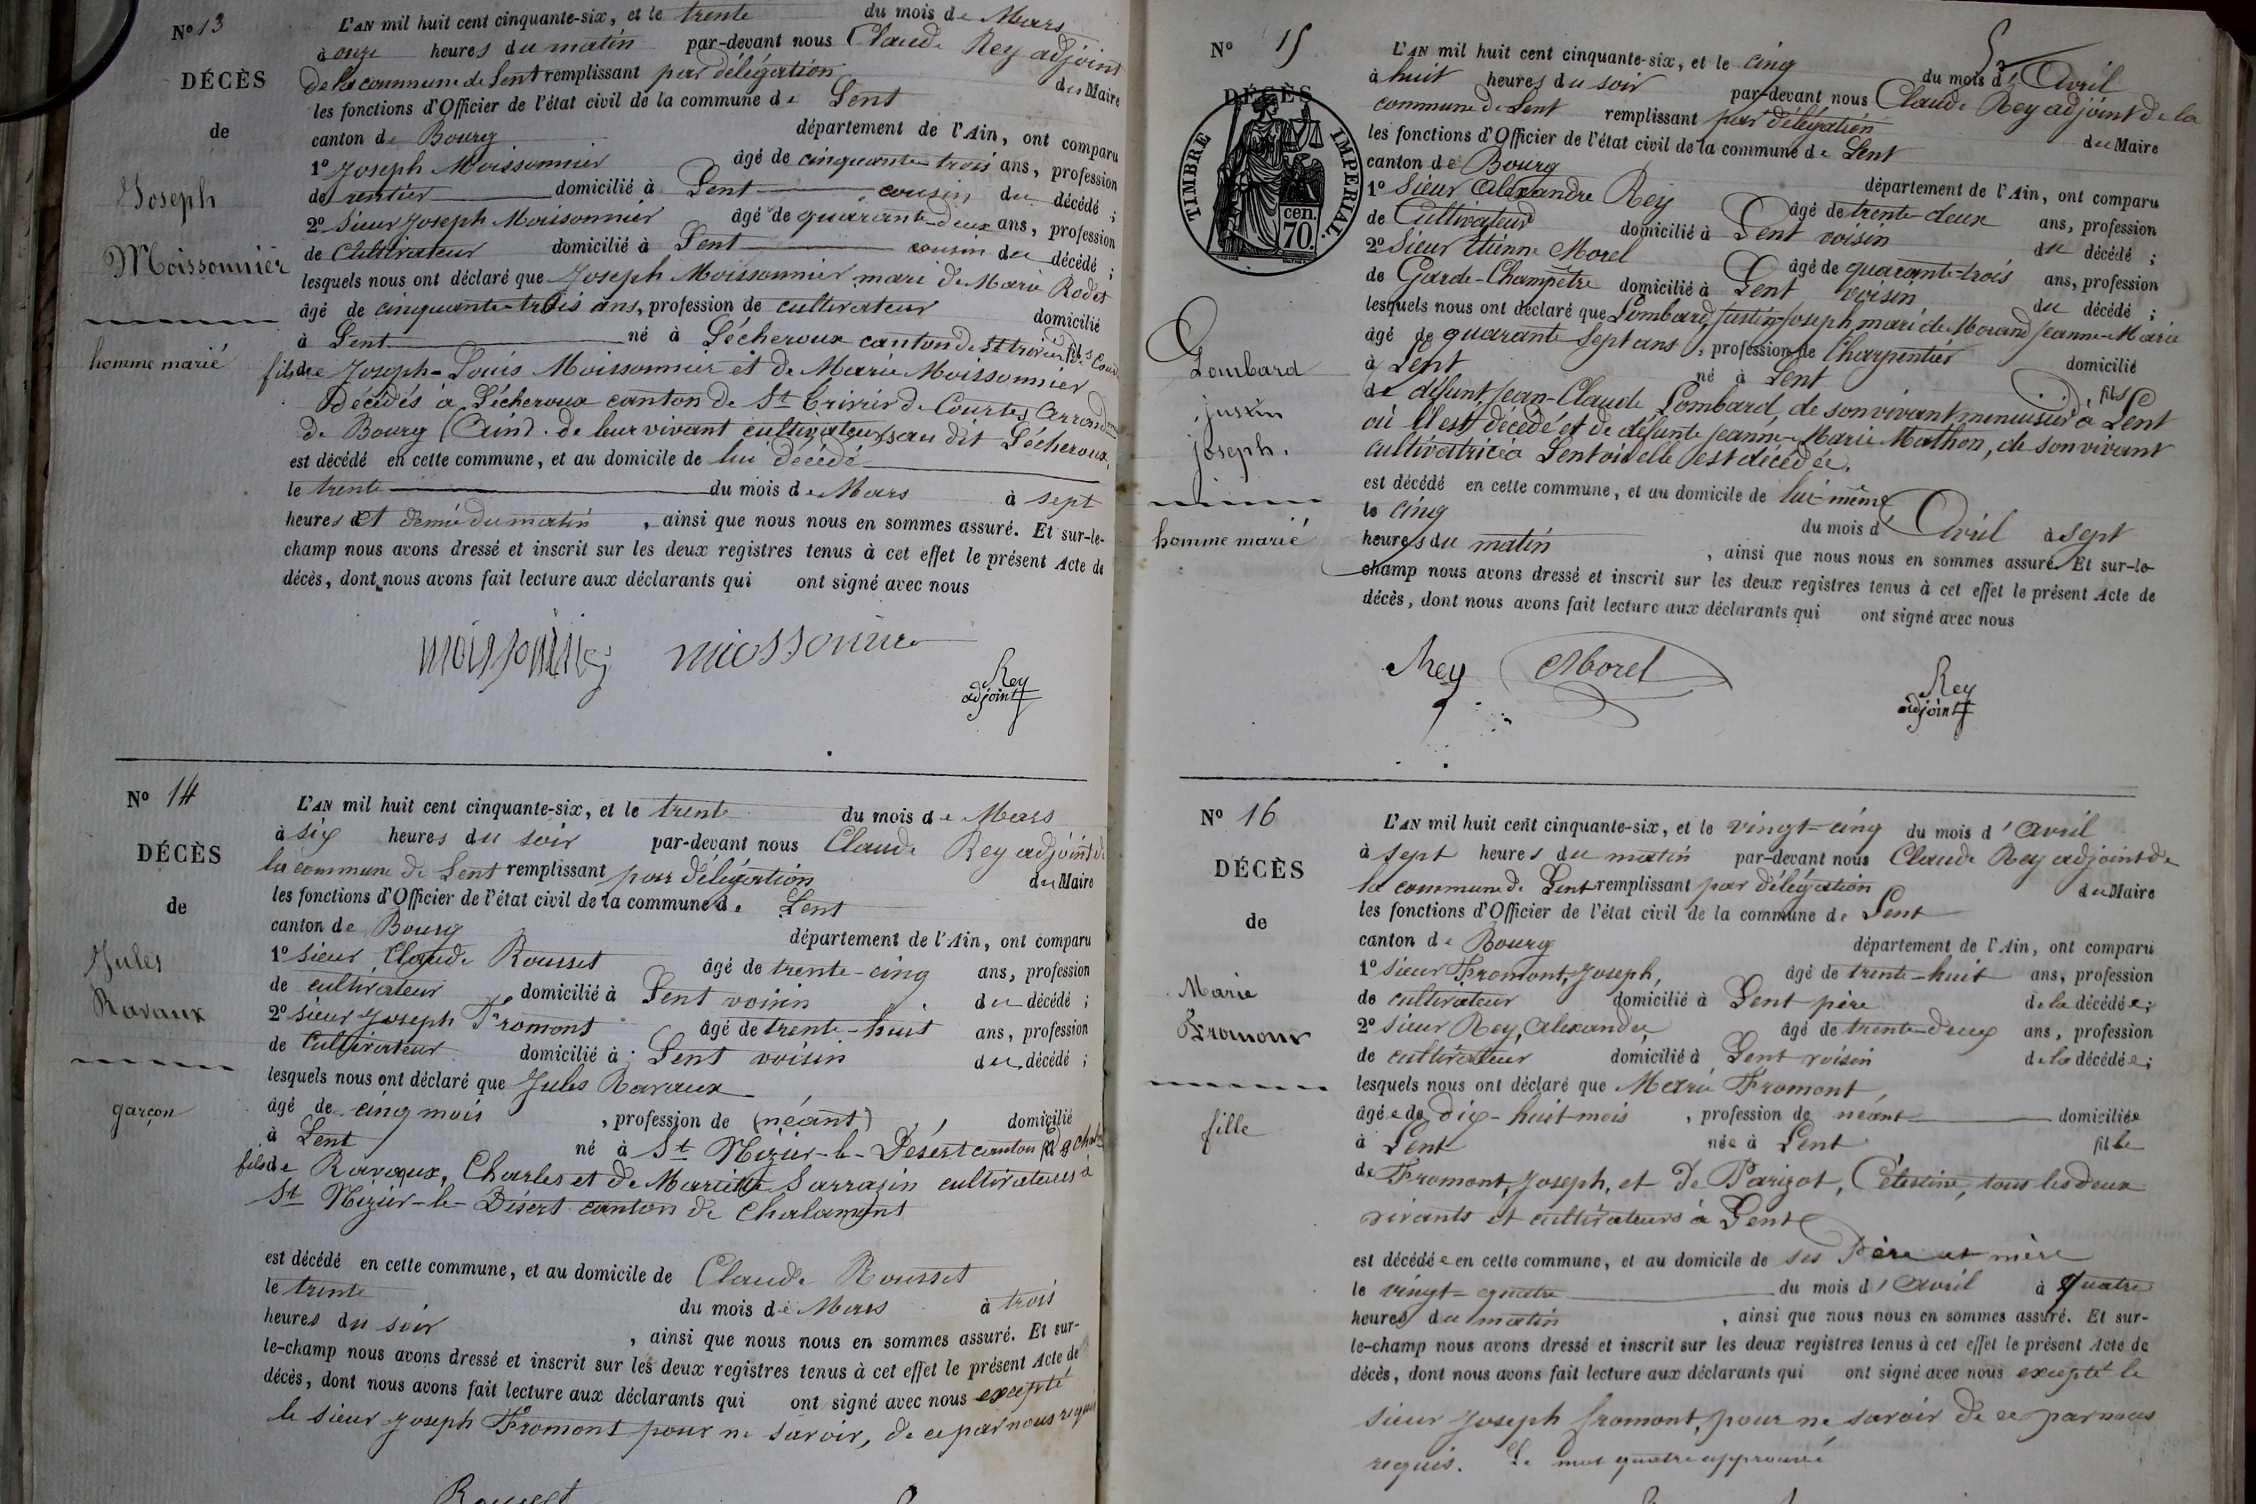 Nº 13
DÉCÈS
de
Joseph
Moissonnier
homme marié
L'AN mil huit cent cinquante-six, et le trente du mois de Mars
à onze heures du matin par-devant nous Claude Rey adjoint
de la commune de Lent remplissant par délégation du Maire
les fonctions d'Officier de l'état civil de la commune de Lent
canton de Bourg département de l'Ain, ont comparu
1º Joseph Moissonnier âgé de cinquante-trois ans, profession
de rentier domicilié à Lent cousin du décédé ;
2º Sieur Joseph Moissonnier âgé de quarante-deux ans, profession
de Cultivateur domicilié à Lent cousin du décédé ;
lesquels nous ont déclaré que Joseph Moissonnier mari de Marie Rodet
âgé de cinquante-trois ans, profession de cultivateur domicilié
à Lent né à Lécheroux canton de St trivier de Cour
fils de Joseph-Louis Moissonnier et de Marie Moissonnier
Décédés à Lécheroux canton de St Trivier de Courtes Arrond
de Bourg (Ain). de leur vivant cultivateurs au dit Lécheroux,
est décédé en cette commune, et au domicile de lui décédé
le trente du mois de Mars à sept
heures et demie du matin , ainsi que nous nous en sommes assuré. Et sur-le-
champ nous avons dressé et inscrit sur les deux registres tenus à cet effet le présent Acte de
décès, dont nous avons fait lecture aux déclarants qui ont signé avec nous
moissonnier miossonnier
Rey
adjoint
Nº 14
DÉCÈS
de
Jules
Ravaux
garçon
L'AN mil huit cent cinquante-six, et le trente du mois de Mars
à six heures du soir par-devant nous Claude Rey adjoint de
la commune de Lent remplissant par délégation du Maire
les fonctions d'Officier de l'état civil de la commune de Lent
canton de Bourg département de l'Ain, ont comparu
1º sieur Claude Rousset âgé de trente-cinq ans, profession
de cultivateur domicilié à Lent voisin du décédé ;
2º sieur Joseph Fromont âgé de trente-huit ans, profession
de Cultivateur domicilié à Lent voisin du décédé ;
lesquels nous ont déclaré que Jules Ravaux
âgé de cinq mois , profession de (néant) domicilié
à Lent né à St Nizier-le-Désert canton de
fils de Ravaux, Charles et de Mariette Sarrazin cultivateurs à
St Nizier-le-Désert canton de Chalamont
est décédé en cette commune, et au domicile de Claude Rousset
le trente du mois de Mars à trois
heures du soir , ainsi que nous nous en sommes assuré. Et sur-
le-champ nous avons dressé et inscrit sur les deux registres tenus à cet effet le présent Acte de
décès, dont nous avons fait lecture aux déclarants qui ont signé avec nous excepté
le sieur Joseph Fromont pour ne savoir, de ce par nous requis
Rousset
Nº 15
DÉCÈS
TIMBRE IMPERIAL.
cen.
70.
Lombard
Justin
joseph.
homme marié
L'AN mil huit cent cinquante-six, et le cinq du mois d'Avril
à huit heures du soir par-devant nous Claude Rey adjoint de la
commune de Lent remplissant par délégation du Maire
les fonctions d'Officier de l'état civil de la commune de Lent
canton de Bourg département de l'Ain, ont comparu
1º Sieur Alexandre Rey âgé de trente-deux ans, profession
de Cultivateur domicilié à Lent voisin du décédé ;
2º Sieur Etienne Morel âgé de quarante-trois ans, profession
de Garde-Champêtre domicilié à Lent voisin du décédé ;
lesquels nous ont déclaré que Lombard Justin-Joseph mari de Morand Jeanne-Marie
âgé de quarante sept ans , profession de Charpentier domicilié
à Lent né à Lent , fils
de défunt Jean-Claude Lombard, de son vivant menuisier à Lent
où il est décédé et de défunte Jeanne-Marie Mathon, de son vivant
cultivatrice à Lent où elle est décédée.
est décédé en cette commune, et au domicile de lui-même
le cinq du mois d'Avril à sept
heures du matin , ainsi que nous nous en sommes assuré. Et sur-le-
champ nous avons dressé et inscrit sur les deux registres tenus à cet effet le présent Acte de
décès, dont nous avons fait lecture aux déclarants qui ont signé avec nous
Rey Morel
Rey
adjoint
Nº 16
DÉCÈS
de
Marie
Fromont
fille
L'AN mil huit cent cinquante-six, et le vingt-cinq du mois d'Avril
à sept heures du matin par-devant nous Claude Rey adjoint de
la commune de Lent remplissant par délégation du Maire
les fonctions d'Officier de l'état civil de la commune de Lent
canton de Bourg département de l'Ain, ont comparu
1º sieur Fromont, Joseph, âgé de trente-huit ans, profession
de cultivateur domicilié à Lent père de la décédée ;
2º sieur Rey, Alexandre, âgé de trente-deux ans, profession
de cultivateur domicilié à Lent voisin de la décédée ;
lesquels nous ont déclaré que Marie Fromont,
âgée de dix-huit mois , profession de néant domiciliée
à Lent née à Lent fille
de Fromont, Joseph, et de Parizot, Célestine, tous les deux
vivants et cultivateurs à Lent
est décédée en cette commune, et au domicile de ses Père et mère
le vingt-quatre du mois d'Avril à quatre
heures du matin , ainsi que nous nous en sommes assuré. Et sur-
le-champ nous avons dressé et inscrit sur les deux registres tenus à cet effet le présent Acte de
décès, dont nous avons fait lecture aux déclarants qui ont signé avec nous excepté le
sieur Joseph fromont, pour ne savoir de ce par nous
requis. Le mot quatre approuvé